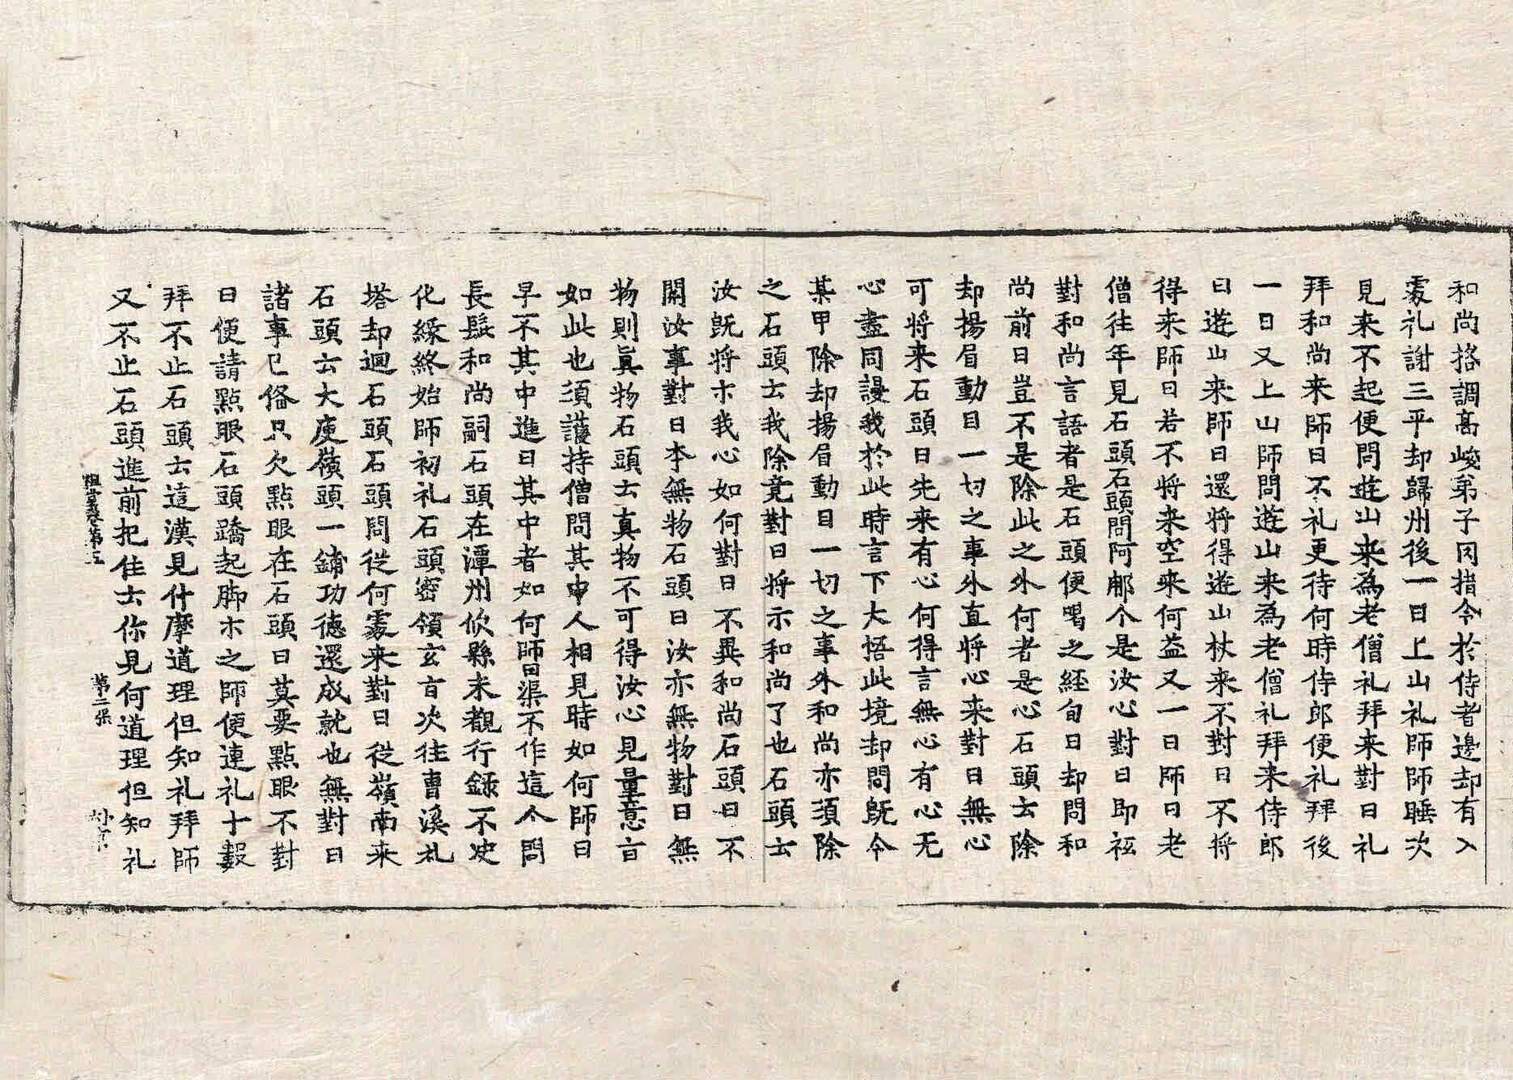 和尚挌調高峻弟子罔措今於侍者邊却有入
䖏礼謝三平却歸州後一日上山礼師師睡次
見来不起便問遊山来為老僧礼拜来對曰礼
拜和尚来師曰不礼更待何時侍郎便礼拜後
一日又上山師問遊山来為老僧礼拜来侍郎
曰遊山来師曰還將得遊山杖来不對曰不將
得来師曰若不將来空来何益又一日師曰老
僧往年見石頭石頭問阿那个是汝心對曰即秪
對和尚言語者是石頭便喝之經旬日却問和
尚前日豈不是除此之外何者是心石頭云除
却揚眉動目一切之事外直將心来對曰無心
可將来石頭曰先来有心何得言無心有心无
心盡同謾我於此時言下大悟此境却問既令
某甲除却揚眉動目一切之事外和尚亦須除
之石頭云我除竟對曰將示和尚了也石頭云
汝既將示我心如何對曰不異和尚石頭曰不
關汝事對曰本無物石頭曰汝亦無物對曰無
物則真物石頭云真物不可得汝心見量意旨
如此也須護持僧問其中人相見時如何師曰
早不其中進曰其中者如何師曰渠不作這个問
長髭和尚嗣石頭在潭州攸縣未覩行録不决
化緣終始師初礼石頭密領玄旨次往曹溪礼
塔却迴石頭石頭問從何䖏来對曰從嶺南来
石頭云大庾嶺頭一鋪功德還成就也無對曰
諸事已俻只欠點眼在石頭曰莫要點眼不對
曰便請點眼石頭蹺起脚示之師便連礼十數
拜不止石頭云這漢見什摩道理但知礼拜師
又不止石頭進前把住云你見何道理但知礼
祖堂卷第五 第二張